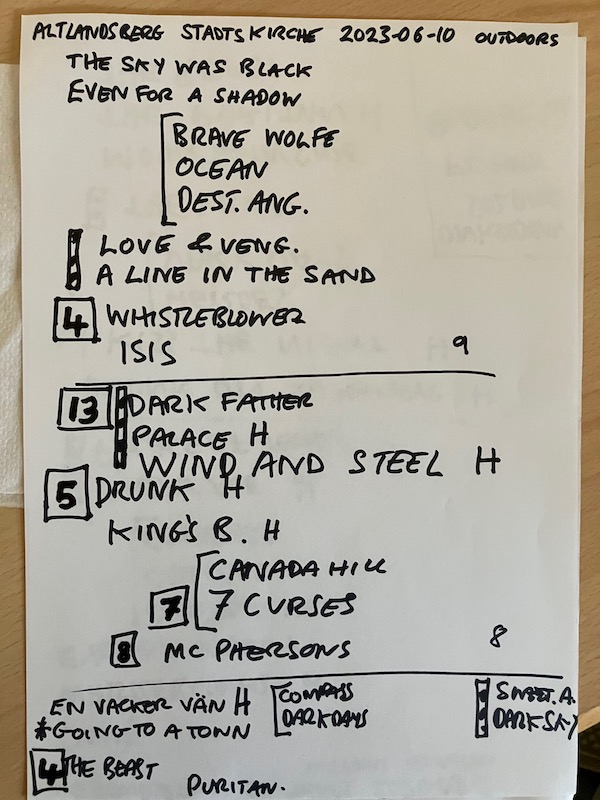 ALTLANDSBERG STADTSKIRCHE 2023-06-10 OUTDOORS
THE SKY WAS BLACK
EVEN FOR A SHADOW
BRAVE WOLFE
OCEAN
DEST. ANG.
LOVE & VENG.
A LINE IN THE SAND
4 WHISTLEBLOWER
ISIS 9
13 DARK FATHER
PALACE H
WIND AND STEEL H
5 DRUNK H
KING'S B. H
CANADA HILL
7 7 CURSES
8 MC PHERSONS 8
EN VACKER VÄN H COMPASS SWEET. A.
*GOING TO A TOWN DARK DAYS DARK SKY
4 THE BEAST
PURITAN.